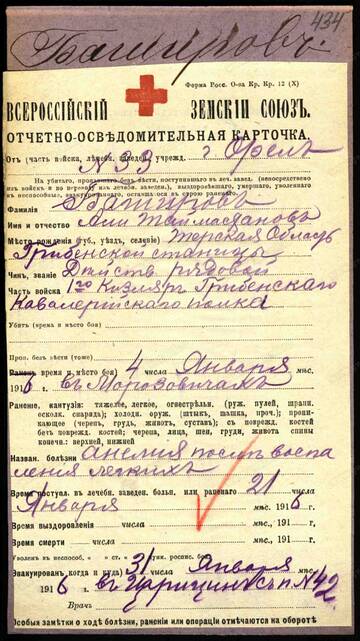 434
Башировъ.
Форма Росс. О-ва Кр. Кр. 12 (X)
ВСЕРОССІЙСКІЙ ЗЕМСКІЙ СОЮЗЪ.
ОТЧЕТНО-ОСВѢДОМИТЕЛЬНАЯ КАРТОЧКА.
Отъ (часть войска, лѣчебн. завед., учрежд. № 32 г Орелъ
На убитаго, пропавшаго безъ вѣсти, поступившаго въ леч. завед. (непосредственно
изъ войскъ и по переводу изъ лечебн. заведен.), выздоровѣвшаго, умершаго, уволеннаго
Фамилія Башировъ
Имя и отчество Али Таймасхановъ
Мѣсто рожденія (губ., уѣздъ, селеніе) Терская Область
Грибенской станицы
Чинъ, званіе Дѣйств рядовой
Часть войска 1го Кизляр Грибенскаго
Кавалерійскаго полка
Убитъ (время и мѣсто боя)
Проп. безъ вѣсти (тоже)
Раненъ время и мѣсто боя) 4 числа Января мѣс.
1916 въ Моровичахъ
Раненіе, контузія: тяжелое, легкое, огнестрѣльн. (руж. пулей, шрапн.
осколк. снаряда); холодн. оруж. (штык, шашка, проч.); проника-
ющее (черепъ, грудь, животъ, суставъ); съ поврежд. костей
безъ поврежд. костей; черепа, лица, шеи, груди, живота спины
конечн.: верхней, нижней
Назван. болѣзни Анемія послѣ воспа
ленія легкихъ
Время поступл. въ лечебн. заведен. больн. или раненаго 21 числа
Января мѣс. 1916 г.
Время выздоровленія числа мѣс. 191 г.
Время смерти числа мѣс. 191 г.
Эвакуированъ, когда и куда) 31 числа Января мѣс.
1916 въ Царицынъ сп № 42
Врачъ
Особыя замѣтки о ходѣ болѣзни, раненіи или операціи отмѣчаются на оборотѣ